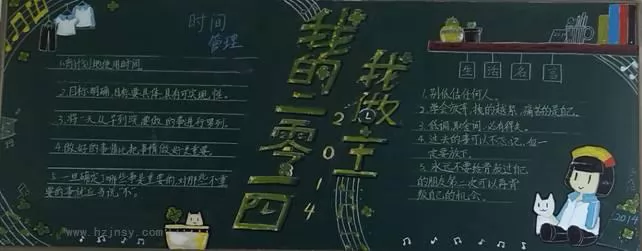 时间
管理
1.有计划地使用时间
2.目标明确,目标要具体,具有可实现性。
3.将一天从早到晚要做的事进行罗列。
4.做好的事情比把事情做好更重要。
5.一旦确定了哪些事是重要的,对那些不重
要的事就应当说“不”。
我的二零一四
我做主
2014
生活名言
1.别低估任何人。
2.学会放弃,拽的越紧,痛苦的是自己。
3.低调
4.过去的事可以不忘记,但一
定要放下。
5.永远不要给背叛过自己
的朋友第二次可以再背
叛自己的机会。
2014
www.hzjnsy.com